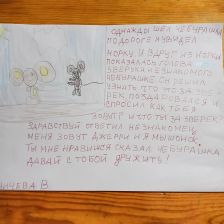 ОДНАЖДЫ ШЁЛ ЧЕБУРАШКА
ПО ДОРОГЕ И УВИДЕЛ
НОРКУ И ВДРУГ ИЗ НОРКИ
ПОКАЗАЛАСЬ ГОЛОВА
ЗВЕРЬКА НЕЗНАКОМОГО
ЧЕБУРАШКЕ ОН РЕШИЛ
УЗНАТЬ ЧТО ЭТО ЗА ЗВЕ
РЁК, ПОЗДАРОВАЛСЯ И
СПРОСИЛ КАК ТЕБЯ
ЗОВУТ? И ЧТО ТЫ ЗА ЗВЕРЁК?
ЗДРАВСТВУЙ ОТВЕТИЛ НЕЗНАКОМЕЦ,
МЕНЯ ЗОВУТ ДЖЕРРИ И Я МЫШОНОК.
ТЫ МНЕ НРАВИШСЯ СКАЗАЛ ЧЕБУРАШКА
ДАВАЙ С ТОБОЙ ДРУЖИТЬ!
В.